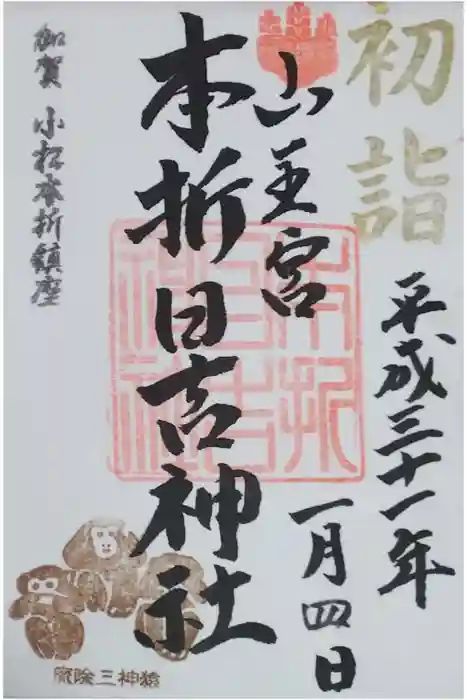 初詣
平成三十一年
一月四日
山王宮
本折日吉神社
加賀 小松本折鎮座
本折日吉神社
猿神三除厄